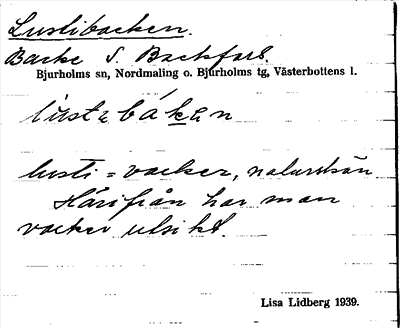 Lustibacken.
Backe S. Backfors.
Bjurholms sn, Nordmaling o. Bjurholms tg, Västerbottens l.
lustibákän
lusti = vacker, naturskön
Härifrån har man
vacker utsikt.
Lisa Lidberg 1939.